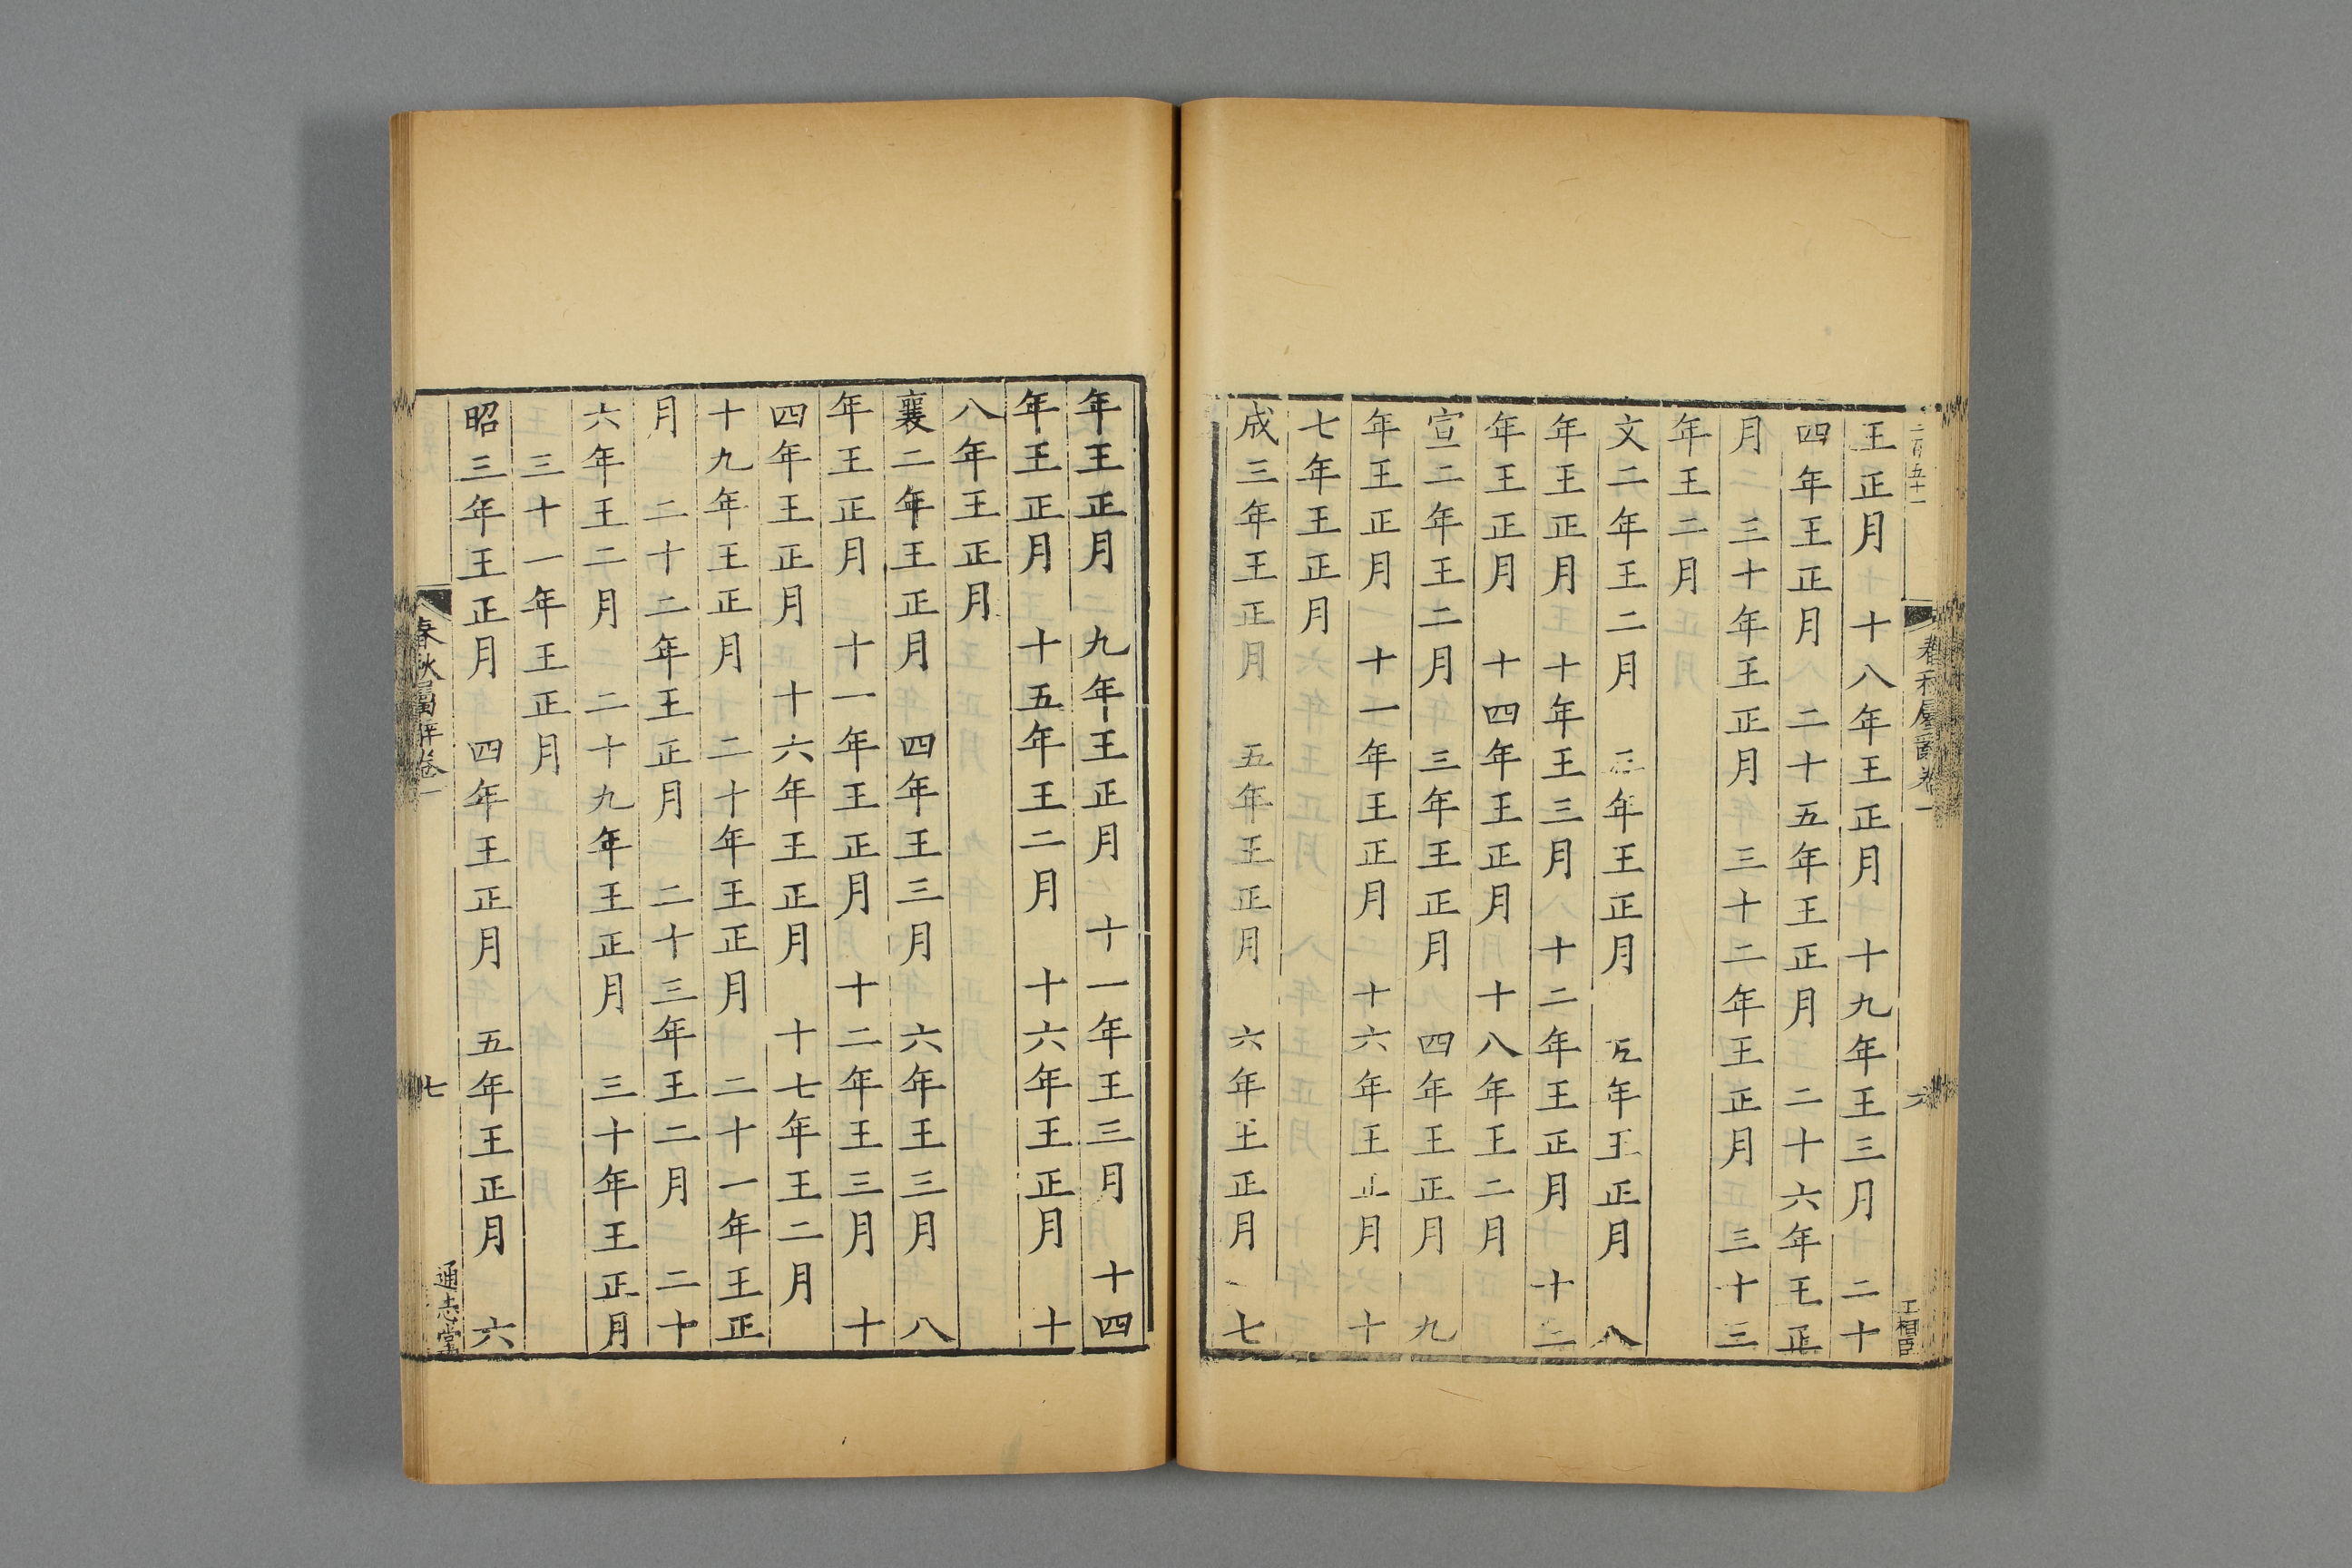 王正月 十八年王正月 十九年王三月 二十
四年王正月 二十五年王正月 二十六年王正
月 三十年王正月 三十二年王正月 三十三
年王二月
文二年王二月 三年王正月 五年王正月 八
年王正月 十年王三月 十二年王正月 十三
年王正月 十四年王正月 十八年王二月
宣二年王二月 三年王正月 四年王正月 九
年王正月 十一年王正月 十六年王正月 十
七年王正月
成三年王正月 五年王正月 六年王正月 七
春秋屬辭卷一
六
王相臣
年王正月 九年王正月 十一年王三月 十四
年王正月 十五年王二月 十六年王正月 十
八年王正月
襄二年王正月 四年王三月 六年王三月 八
年王正月 十一年王正月 十二年王三月 十
四年王正月 十六年王正月 十七年王二月
十九年王正月 二十年王正月 二十一年王正
月 二十二年王正月 二十三年王二月 二十
六年王二月 二十九年王正月 三十年王正月
三十一年王正月
昭三年王正月 四年王正月 五年王正月 六
春秋屬辭卷一
七
通志堂